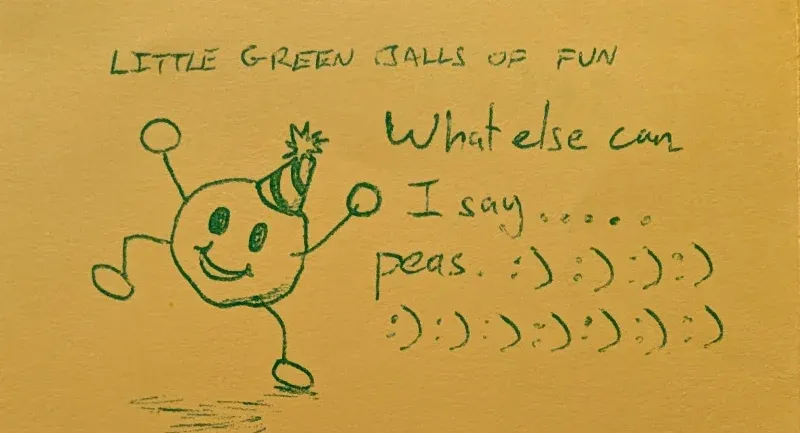 LITTLE GREEN BALLS OF FUN
What else can
I say.....
peas. :) :) :) :)
:) :) :) :) :) :) :)